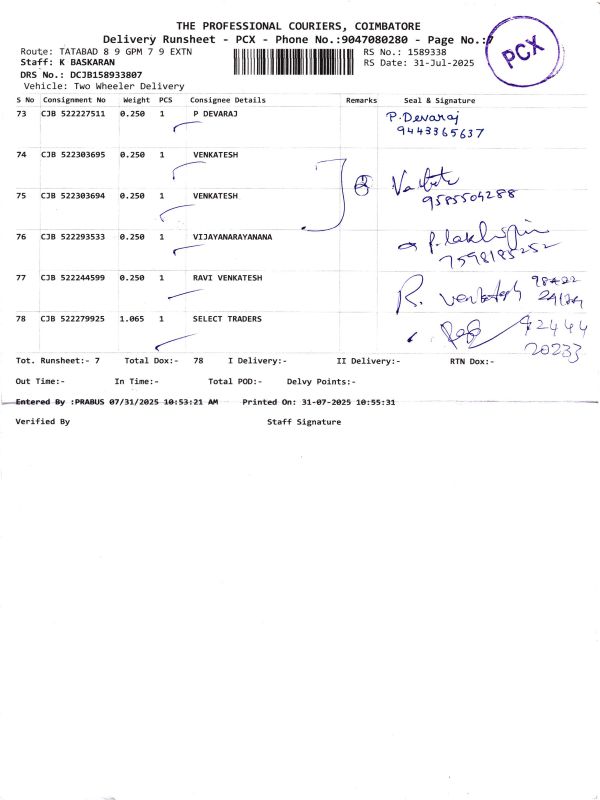 THE PROFESSIONAL COURIERS, COIMBATORE
Delivery Runsheet - PCX - Phone No.:9047080280 - Page No.:
PCX
Route: TATABAD 8 9 GPM 7 9 EXTN
RS No.: 1589338
Staff: K BASKARAN
RS Date: 31-Jul-2025
DRS No.: DCJB158933807
Vehicle: Two Wheeler Delivery
S No Consignment No Weight PCS Consignee Details Remarks Seal & Signature
73 CJB 522227511 0.250 1 P DEVARAJ P.Devaraj
9443365637
74 CJB 522303695 0.250 1 VENKATESH
9585504288
75 CJB 522303694 0.250 1 VENKATESH
76 CJB 522293533 0.250 1 VIJAYANARAYANANA
7598185252
77 CJB 522244599 0.250 1 RAVI VENKATESH R. Venkatesh
78 CJB 522279925 1.065 1 SELECT TRADERS
20233
Tot. Runsheet:- 7 Total Dox:- 78 I Delivery:- II Delivery:- RTN Dox:-
Out Time:- In Time:- Total POD:- Delvy Points:-
Entered By :PRABUS 07/31/2025 10:53:21 AM Printed On: 31-07-2025 10:55:31
Verified By Staff Signature